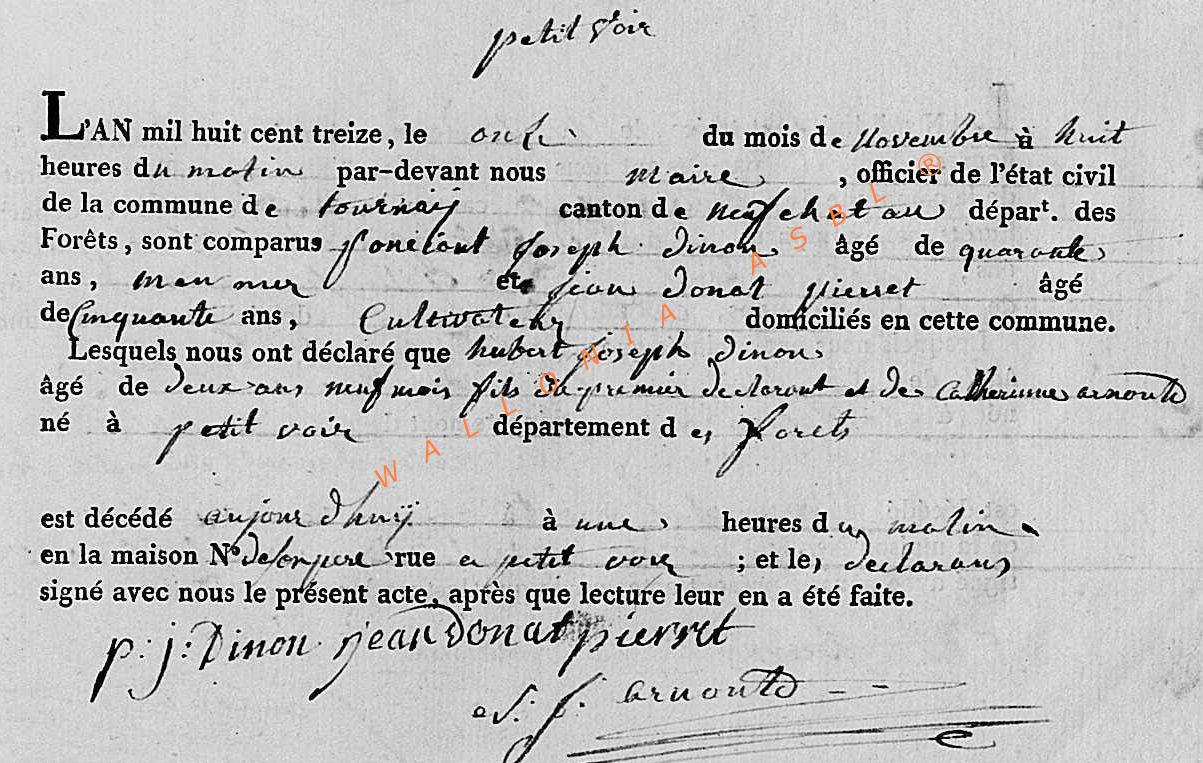 petit voir
L'AN mil huit cent treize, le onze du mois de novembre à huit
heures du matin par-devant nous maire, officier de l'état civil
de la commune de tournay canton de neufchateau départ. des
Forêts, sont comparus Joseph dinon âgé de quarante
ans, et jean donat pierret âgé
de Cinquante ans, Cultivateur domiciliés en cette commune.
Lesquels nous ont déclaré que hubert joseph dinon
âgé de deux ans neuf mois fils du premier declarant et de Catherinne arnould
né à petit voir département des forets
est décédé aujourdhuÿ à une heures du matin
en la maison N° de son pere rue a petit voir ; et les declarans
signé avec nous le présent acte, après que lecture leur en a été faite.
p: j: Dinon jean Donat pierret
arnould
WALLONIA ASBL ®